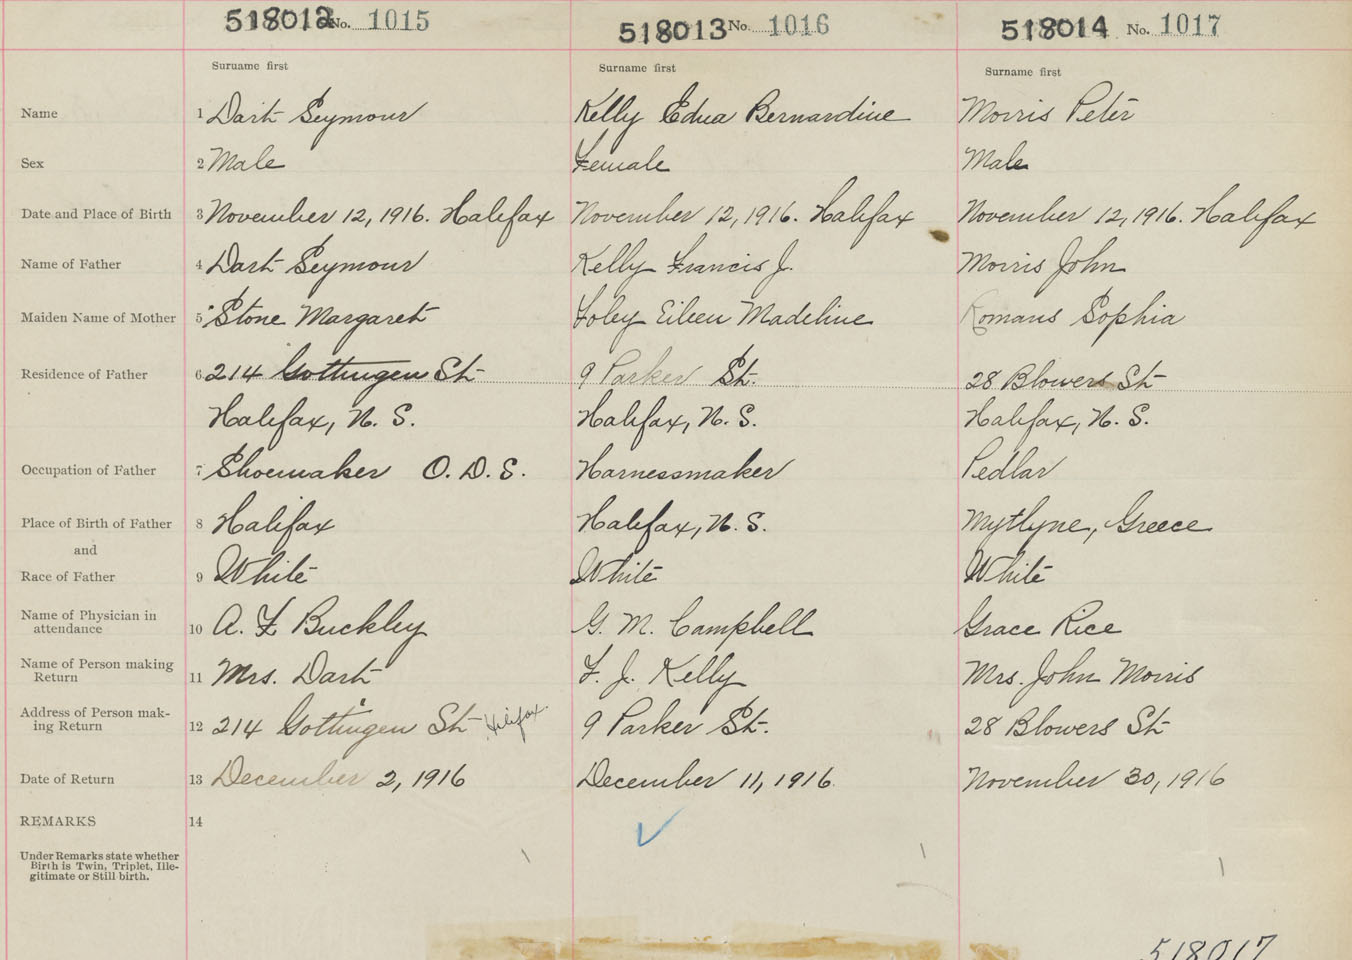 518012 No. 1015 518013 No. 1016 518014 No. 1017
Surname first Surname first Surname first
Name 1 Dart Seymour Kelly Edna Bernardine Morris Peter
Sex 2 Male Female Male
Date and Place of Birth 3 November 12, 1916. Halifax November 12, 1916. Halifax November 12, 1916. Halifax
Name of Father 4 Dart Seymour Kelly Francis J. Morris John
Maiden Name of Mother 5 Stone Margaret Foley Eileen Madeline Romans Sophia
Residence of Father 6 214 Gottingen St 9 Parker St. 28 Blowers St
Halifax, N. S. Halifax, N. S. Halifax, N. S.
Occupation of Father 7 Shoemaker O. D. S. Harnessmaker Pedlar
Place of Birth of Father 8 Halifax Halifax, N. S. Mytlyne, Greece
and
Race of Father 9 White White White
Name of Physician in
attendance 10 A. F Buckley G. M. Campbell Grace Rice
Name of Person making
Return 11 Mrs. Dart F. J. Kelly Mrs. John Morris
Address of Person mak-
ing Return 12 214 Gottingen St Halifax. 9 Parker St. 28 Blowers St
Date of Return 13 December 2, 1916 December 11, 1916 November 30, 1916
REMARKS 14
Under Remarks state whether
Birth is Twin, Triplet, Ille-
gitimate or Still birth.
518017